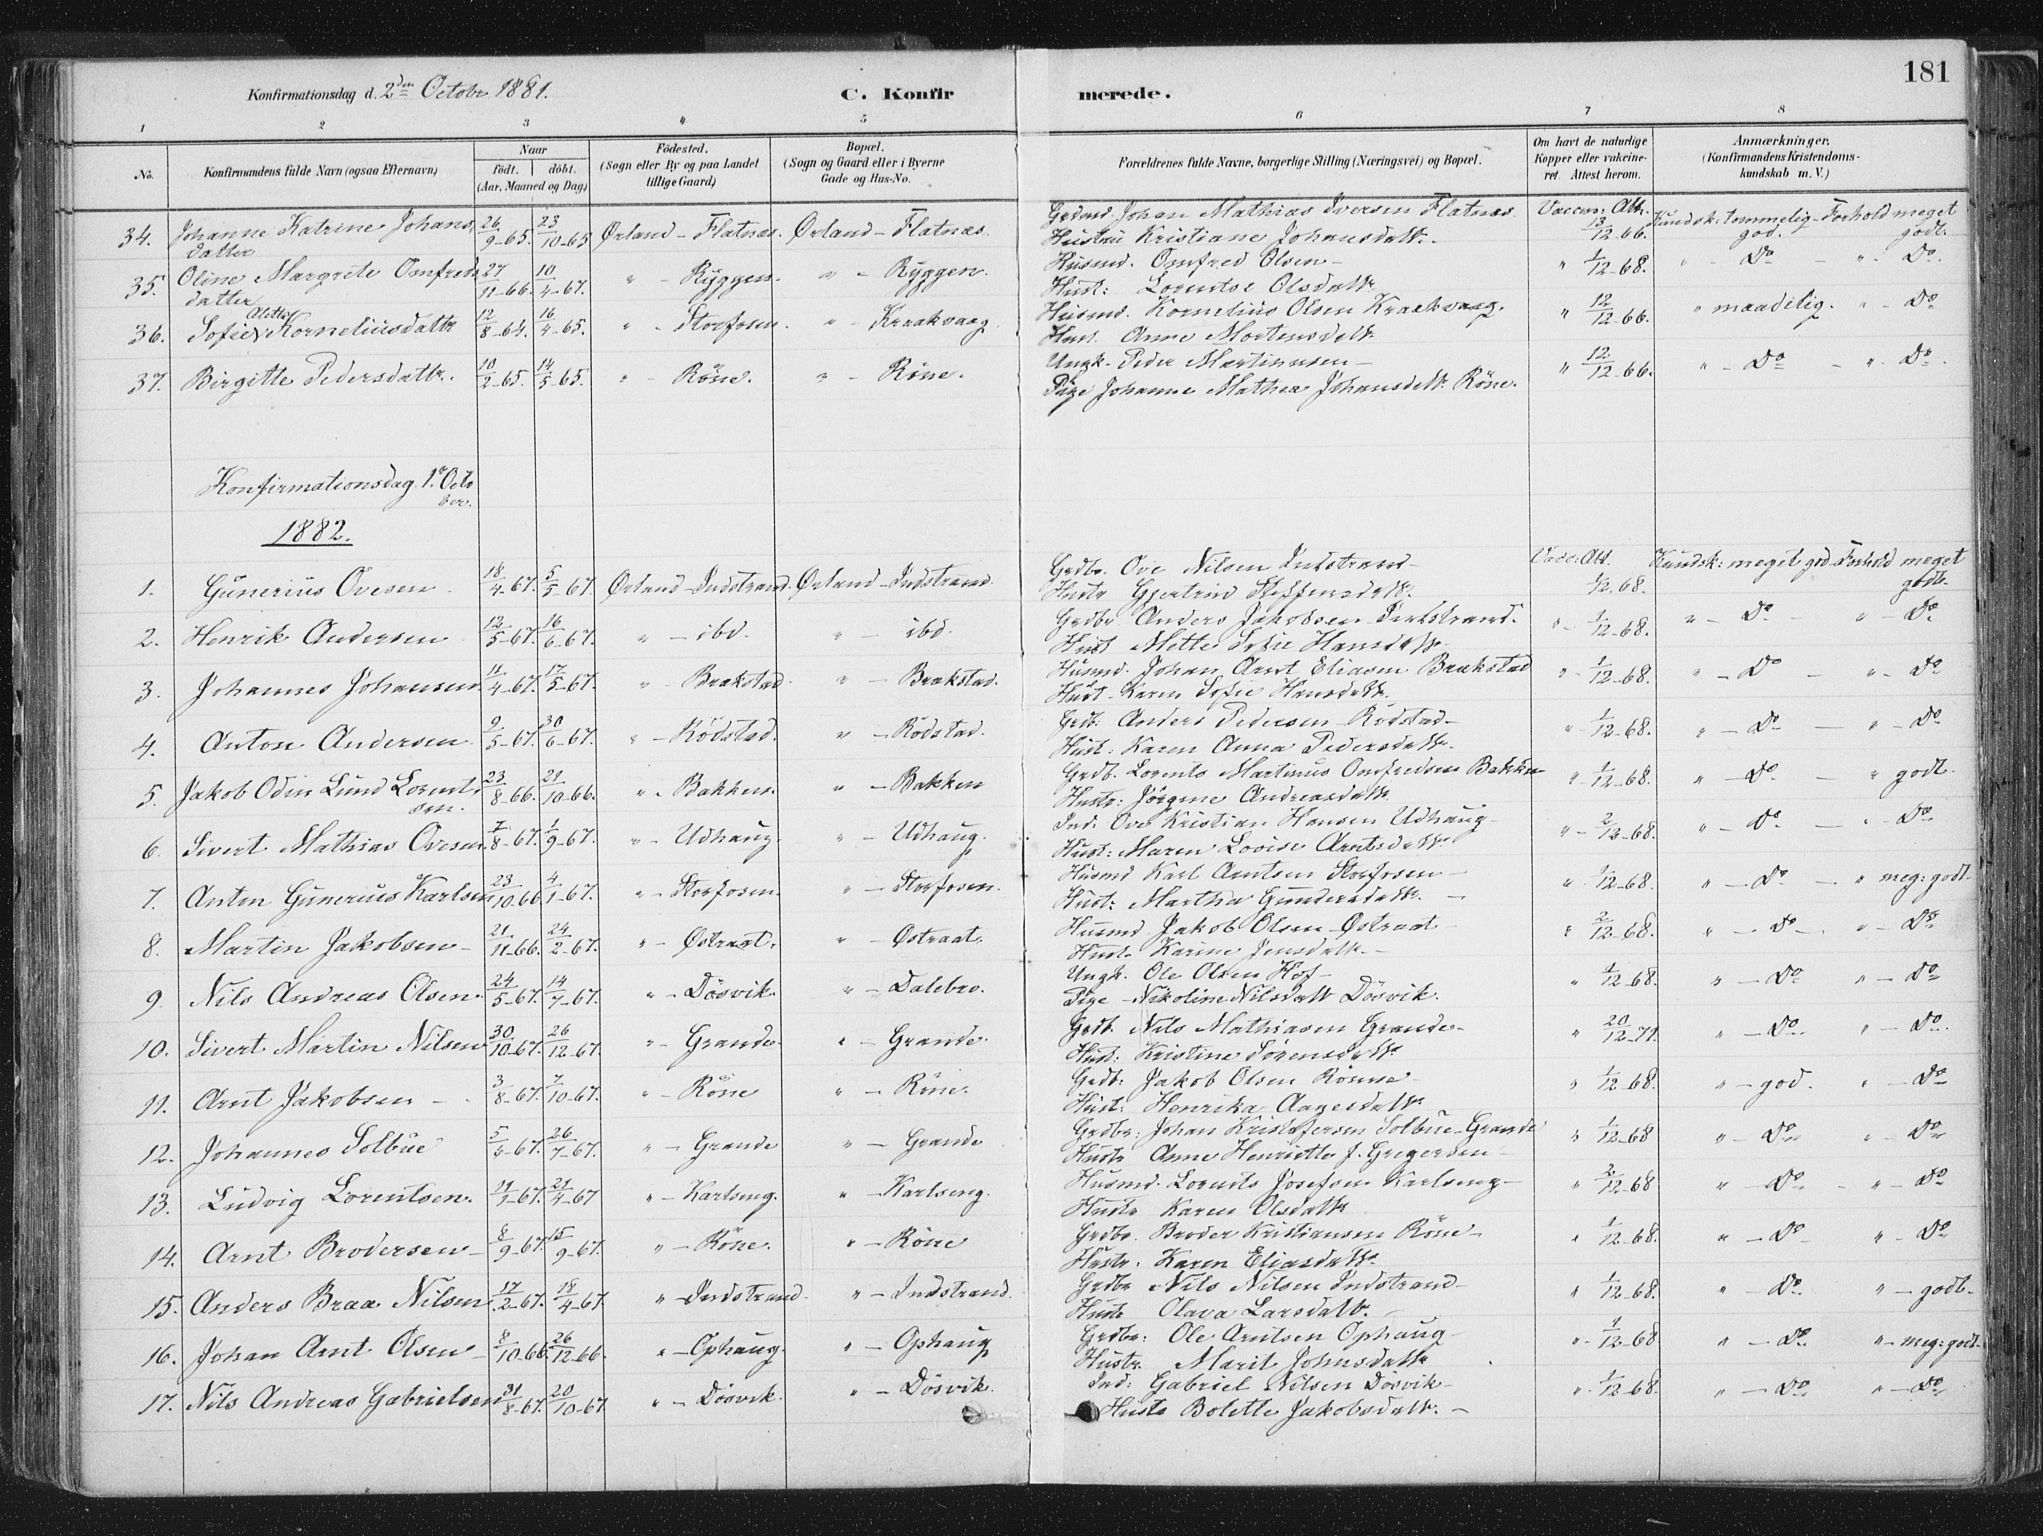 181
Konfirmationsdag d. 2den Octobr 1881. C. Konfirmerede.
1 2 3 4 5 6 7 8
No. Konfirmandens fulde Navn (ogsaa Efternavn) Naar födt. döbt. (Aar, Maaned og Dag) Födested. (Sogn eller By og paa Landet tillige Gaard) Bopæl. (Sogn og Gaard eller i Byerne Gade og Hus-No. Forældrenes fulde Navne, borgerlige Stilling (Næringsvei) og Bopæl. Om havt de naturlige Kopper eller vakcineret. Attest herom. Anmærkninger. (Konfirmandens Kristendomskundskab m. V.)
34. Johanne Katrine Johans datter 26/9-65 23/10-65 Ørland - Flatnæs. Ørland - Flatnæs. Grdmd. Johan Mathias Iversen Flatnæs. Vaccin: Att. 13/12-66. Kundsk: temmelig god. Forhold meget godt.
Hustru Kristiane Johansdattr.
35. Oline Margrete Omfreds datter 27/11-66. 10/4-67. " - Ryggen. " - Ryggen. Husmd. Omfred Olsen - " 1/12-68. " - Do - " - Do.
Hust: Lorentse Olsdattr
36. Sofie Mette Korneliusdattr 12/8-64. 16/4-65. " - Storfosen. " - Kraakvaag. Husmd. Kornelius Olsen Kraakvaag. " 12/12-66. " maadelig. " - Do
Hust. Anne Mortensdattr
37. Birgitte Pedersdattr. 10/2-65. 14/5-65. " - Röne. " - Röne. Ungk. Peder Martinusen - " 12/12-66. " - Do - " - Do.
Pige Johanne Mathea Johansdattr Röne.
Konfirmationsdag 1. October.
1882.
1. Gunerius Ovesen 18/4-67. 5/5-67. Ørland - Indstrand. Ørland - Indstrand. Grdbr. Ove Nilsen Indstrand - Vacc: Att. 1/12-68. Kundsk: meget god Forhold meget godt.
Hustr Gjertrud Steffensdattr.
2. Henrik Andersen 12/5-67. 16/6-67. " - ibd. " - ibd. Grdbr Anders Jakobsen Indstrand. " - 1/12-68. " - Do - " - Do
Hust Mette Sofie Hansdattr
3. Johannes Johansen 11/4-67. 17/5-67. " - Brækstad. " - Brækstad. Husmd. Johan Arnt Eliasen Brækstad " - 1/12-68. " - Do - " - Do
Hust. Karen Sofie Hansdattr.
4. Anton Andersen 9/5-67. 30/6-67. " - Rödstad. " - Rödstad. Grdb. Anders Pedersen Rödstad - " 1/12-68. " - Do - " - Do
Hust. Karen Anna Pedersdattr.
5. Jakob Odin Lund Lorentsen. 23/8-66. 21/10-66. " - Bakken. " - Bakken Grdb. Lorents Martinus Omfredsen Bakken " 1/12-68. " - Do - " godt.
Hustr: Jörgine Andreasdattr
6. Sivert Mathias Ovesen 7/8-67. 1/9-67. " - Udhaug. " - Udhaug. Ind. Ove Kristian Hansen Udhaug - " - 2/12-68. " - Do. - " - Do
Hust: Maren Lovise Arntsdattr
7. Anton Gunerius Karlsen 23/10-66 4/1-67. " - Storfosen. " - Storfosen. Husmd Karl Arntsen Storfosen - " 1/12-68. " - Do - " meg: godt.
Hust: Martha Gundersdattr. -
8. Martin Jakobsen - 21/11-66. 24/2-67. " - Østraat. " - Østraat. Husmd. Jakob Olsen Østraat - " 2/12-68. " - Do -. " - Do
Hust. Karine Jensdattr. -
9. Nils Andreas Olsen. 24/5-67. 14/7-67. " - Dösvik. " - Dalebro. Ungk. Ole Olsen Hof - " 1/12-68. " - Do " - Do
Pige - Nikoline Nilsdatt Dösvik.
10. Sivert Martin Nilsen 30/10-67. 26/12-67. " - Grande. " - Grande. Grdb. Nils Mathiasen Grande - " 20/12-71. " - Do " - Do.
Hust: Kristine Sörensdattr
11. Arnt Jakobsen - 3/8-67. 7/10-67. " - Röne " - Röne. Grdb: Jakob Olsen Rönne - " 1/12-68. " - god. " - Do
Hust: Henrika Aagesdattr
12. Johannes Solbue 5/6-67. 26/7-67. " - Grande " - Grande Grdbr: Johan Kristofersen Solbue - Grande " 1/12-68 " - Do " - Do
Hustr Anne Henriette J. Gregersen -
13. Ludvig Lorentsen. 11/1-67. 21/4-67 " - Karlseng. " - Karlseng. Husmd. Lorents Josefsen Karlseng - " 2/12-68 " - Do - " - Do
Hustr Karen Olsdattr
14. Arnt Brodersen - 8/9-67. 15/9-67. " - Röne. " - Röne Grdbr. Broder Kristiansen Röne - " 1/12-68. " - Do " - Do
Hustr. Karen Eliasdattr.
15. Anders Braa Nilsen 17/2-67. 18/4-67 " - Indstrand. " - Indstrand. Grdbr Nils Nilsen Indstrand - " 1/12-68. " - Do. " - godt.
Hustr Olava Larsdattr. -
16. Johan Arnt Olsen - 8/10-66. 26/12-66. " - Ophaug. " - Ophaug Grdbr: Ole Arntsen Ophaug - " - 1/12-68 " - Do " - meg: godt.
Hustr. Marit Johnsdattr
17. Nils Andreas Gabrielsen 31/8-67. 20/10-67 " - Dösvik. " - Dösvik. Ind: Gabriel Nilsen Dösvik - " - 1/12-68. " - Do " - Do
Hustr Bolette Jakobsdattr. -